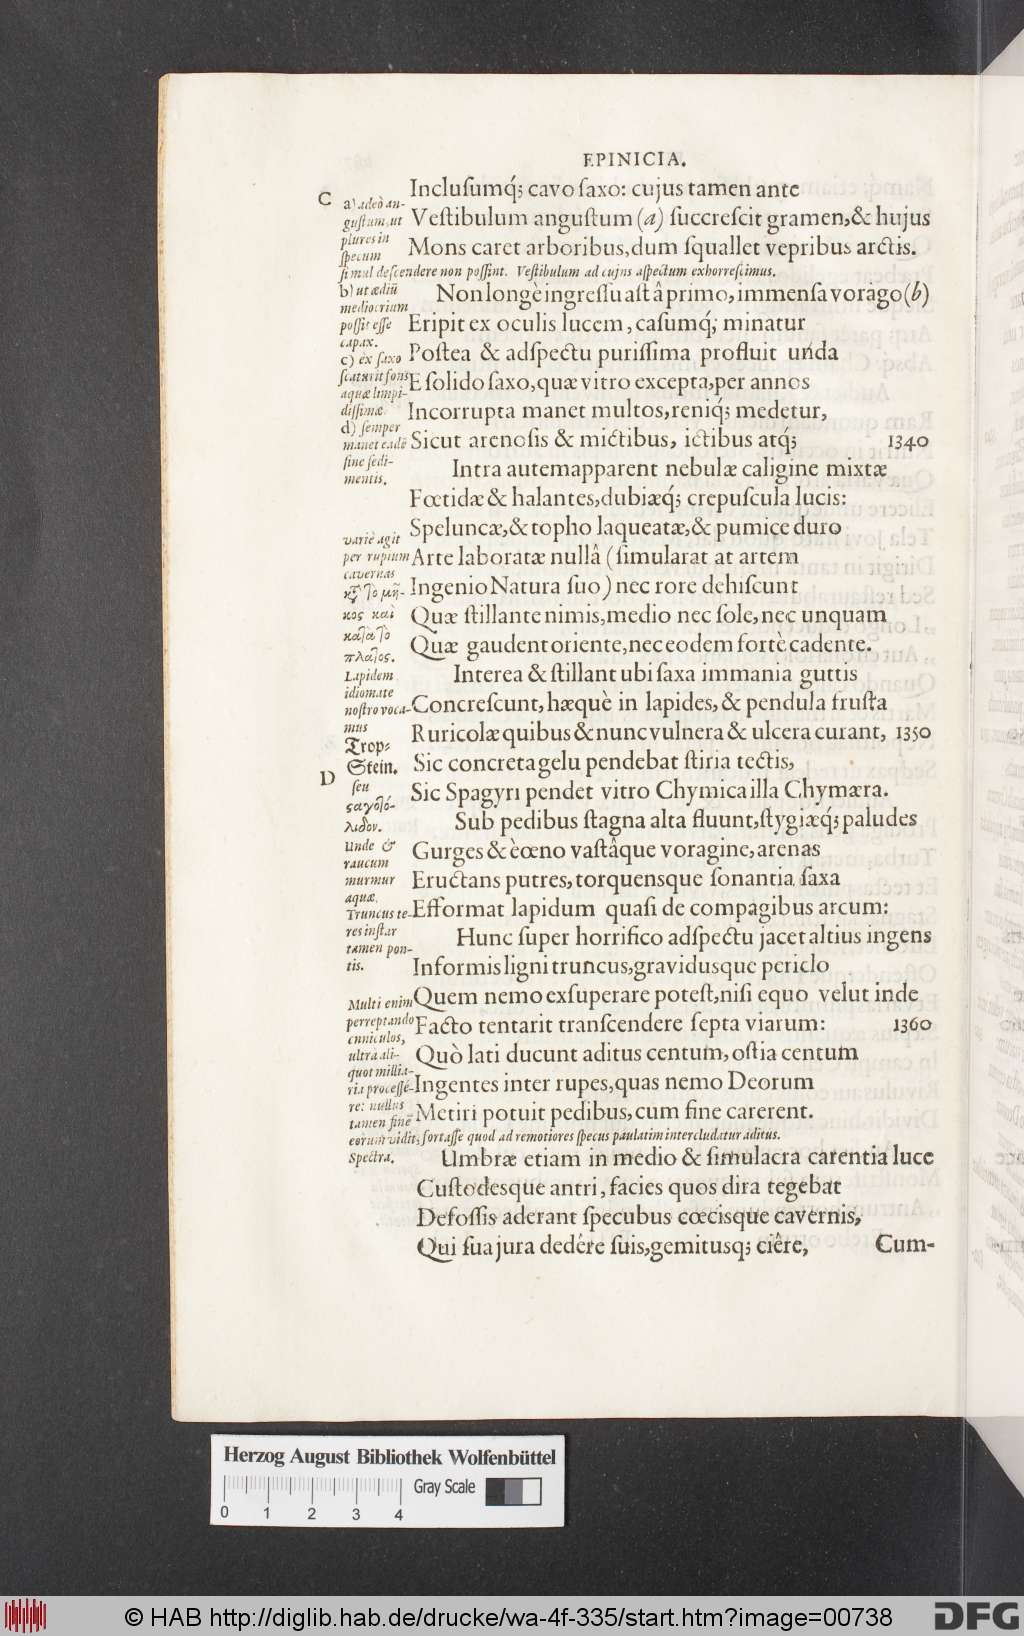 EPINICIA.
C
Incluſumq́; cavo ſaxo: cujus tamen ante
a) adeò an-
guſtum, ut
plures in
ſpecum
ſimul deſcendere non poſſint. Veſtibulum ad cujus aſpectum exhorreſcimus.
Veſtibulum anguſtum (a) ſuccreſcit gramen, & hujus
Mons caret arboribus, dum ſquallet vepribus arctis.
b) ut ædiū
mediocrium
poſſit eſſe
capax.
Non longè ingreſſu aſt â primo, immenſa vorago (b)
Eripit ex oculis lucem, caſumq́; minatur
c) ex ſaxo
ſcaturit fons
aquæ limpi-
diſſimæ
d) ſemper
manet eadē
ſine ſedi-
mentis.
Poſtea & adſpectu puriſſima profluit unda
E ſolido ſaxo, quæ vitro excepta, per annos
Incorrupta manet multos, reniq́; medetur,
Sicut arenoſis & mictibus, ictibus atq́; 1340
Intra autem apparent nebulæ caligine mixtæ
Fœtidæ & halantes, dubiæq́; crepuſcula lucis:
Speluncæ, & topho laqueatæ, & pumice duro
variè agit
per rupium
cavernas
κỳ τὸ μῆ-
κος καὶ
κατὰ τὸ
πλάτος.
Arte laboratæ nullâ (ſimularat at artem
Ingenio Natura ſuo) nec rore dehiſcunt
Quæ ſtillante nimis, medio nec ſole, nec unquam
Quæ gaudent oriente, nec eodem fortè cadente.
Lapidem
idiomate
noſtro voca-
mus
Trop-
Stein.
D
ſeu
ςαγοτό-
λιθον.
Interea & ſtillant ubi ſaxa immania guttis
Concreſcunt, hæquè in lapides, & pendula fruſta
Ruricolæ quibus & nunc vulnera & ulcera curant, 1350
Sic concreta gelu pendebat ſtiria tectis,
Sic Spagyri pendet vitro Chymica illa Chymæra.
Unde &
raucum
murmur
aquæ.
Sub pedibus ſtagna alta fluunt, ſtygiæq́; paludes
Gurges & è cœno vaſtâque voragine, arenas
Eructans putres, torquensque ſonantia ſaxa
Truncus te-
res inſtar
tamen pon-
tis.
Efformat lapidum quaſi de compagibus arcum:
Hunc ſuper horrifico adſpectu jacet altius ingens
Informis ligni truncus, gravidusque periclo
Multi enim
perreptando
cuniculos,
ultra ali-
quot millia-
ria proceſſê-
re: nullus
tamen finē
eorum vidit, fortaſſe quod ad remotiores ſpecus paulatim intercludatur aditus.
Quem nemo exſuperare poteſt, niſi equo velut inde
Facto tentarit tranſcendere ſepta viarum: 1360
Quò lati ducunt aditus centum, oſtia centum
Ingentes inter rupes, quas nemo Deorum
Metiri potuit pedibus, cum fine carerent.
Spectra.
Umbræ etiam in medio & ſimulacra carentia luce
Cuſtodesque antri, facies quos dira tegebat
Defoſſis aderant ſpecubus cœcisque cavernis,
Qui ſua jura dedére ſuis, gemitusq; ciêre,
Cum-
Herzog August Bibliothek Wolfenbüttel
Gray Scale
0 1 2 3 4
© HAB http://diglib.hab.de/drucke/wa-4f-335/start.htm?image=00738
DFG